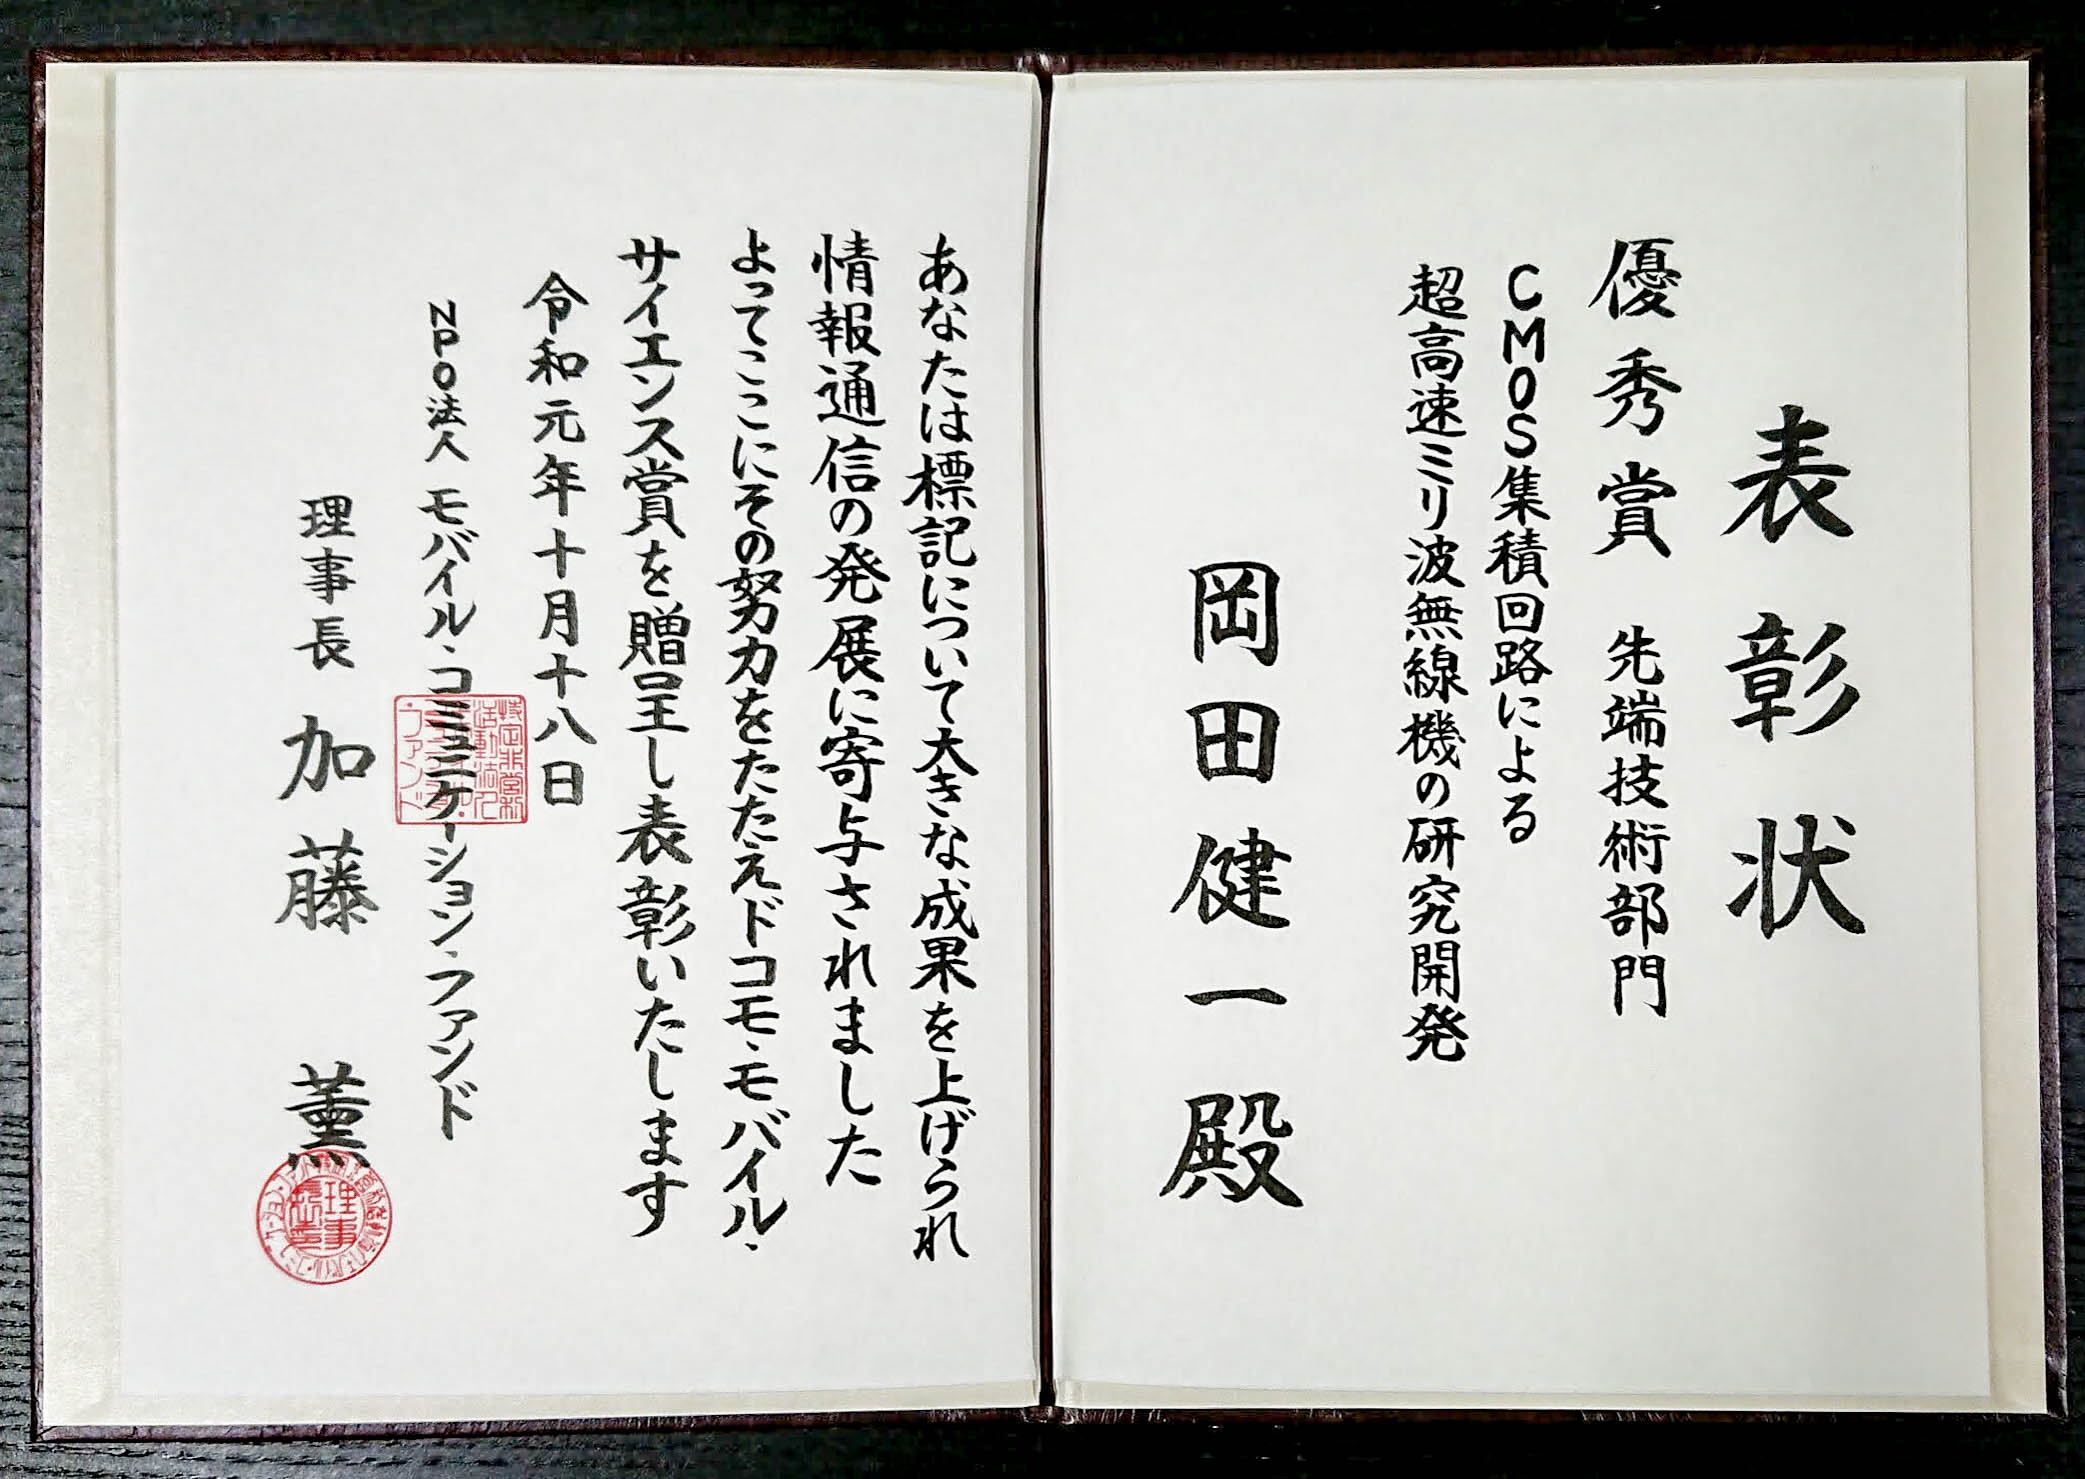 表彰状
優秀賞 先端技術部門
CMOS集積回路による
超高速ミリ波無線機の研究開発
岡田健一殿
あなたは標記について大きな成果を上げられ
情報通信の発展に寄与されました
よってここにその努力をたたえドコモ・モバイル・
サイエンス賞を贈呈し表彰いたします
令和元年十月十八日
NPO法人 モバイル・コミュニケーション・ファンド
理事長 加藤 薫